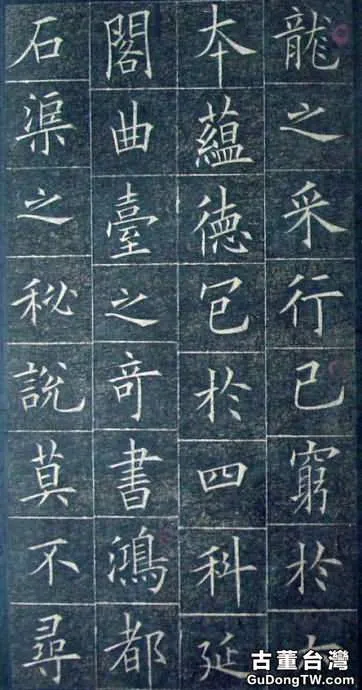 龍之采行已窮於
本蘊德包於四科延
閣曲臺之奇書鴻都
石渠之秘說莫不尋
古董台灣
GuDongTW.com